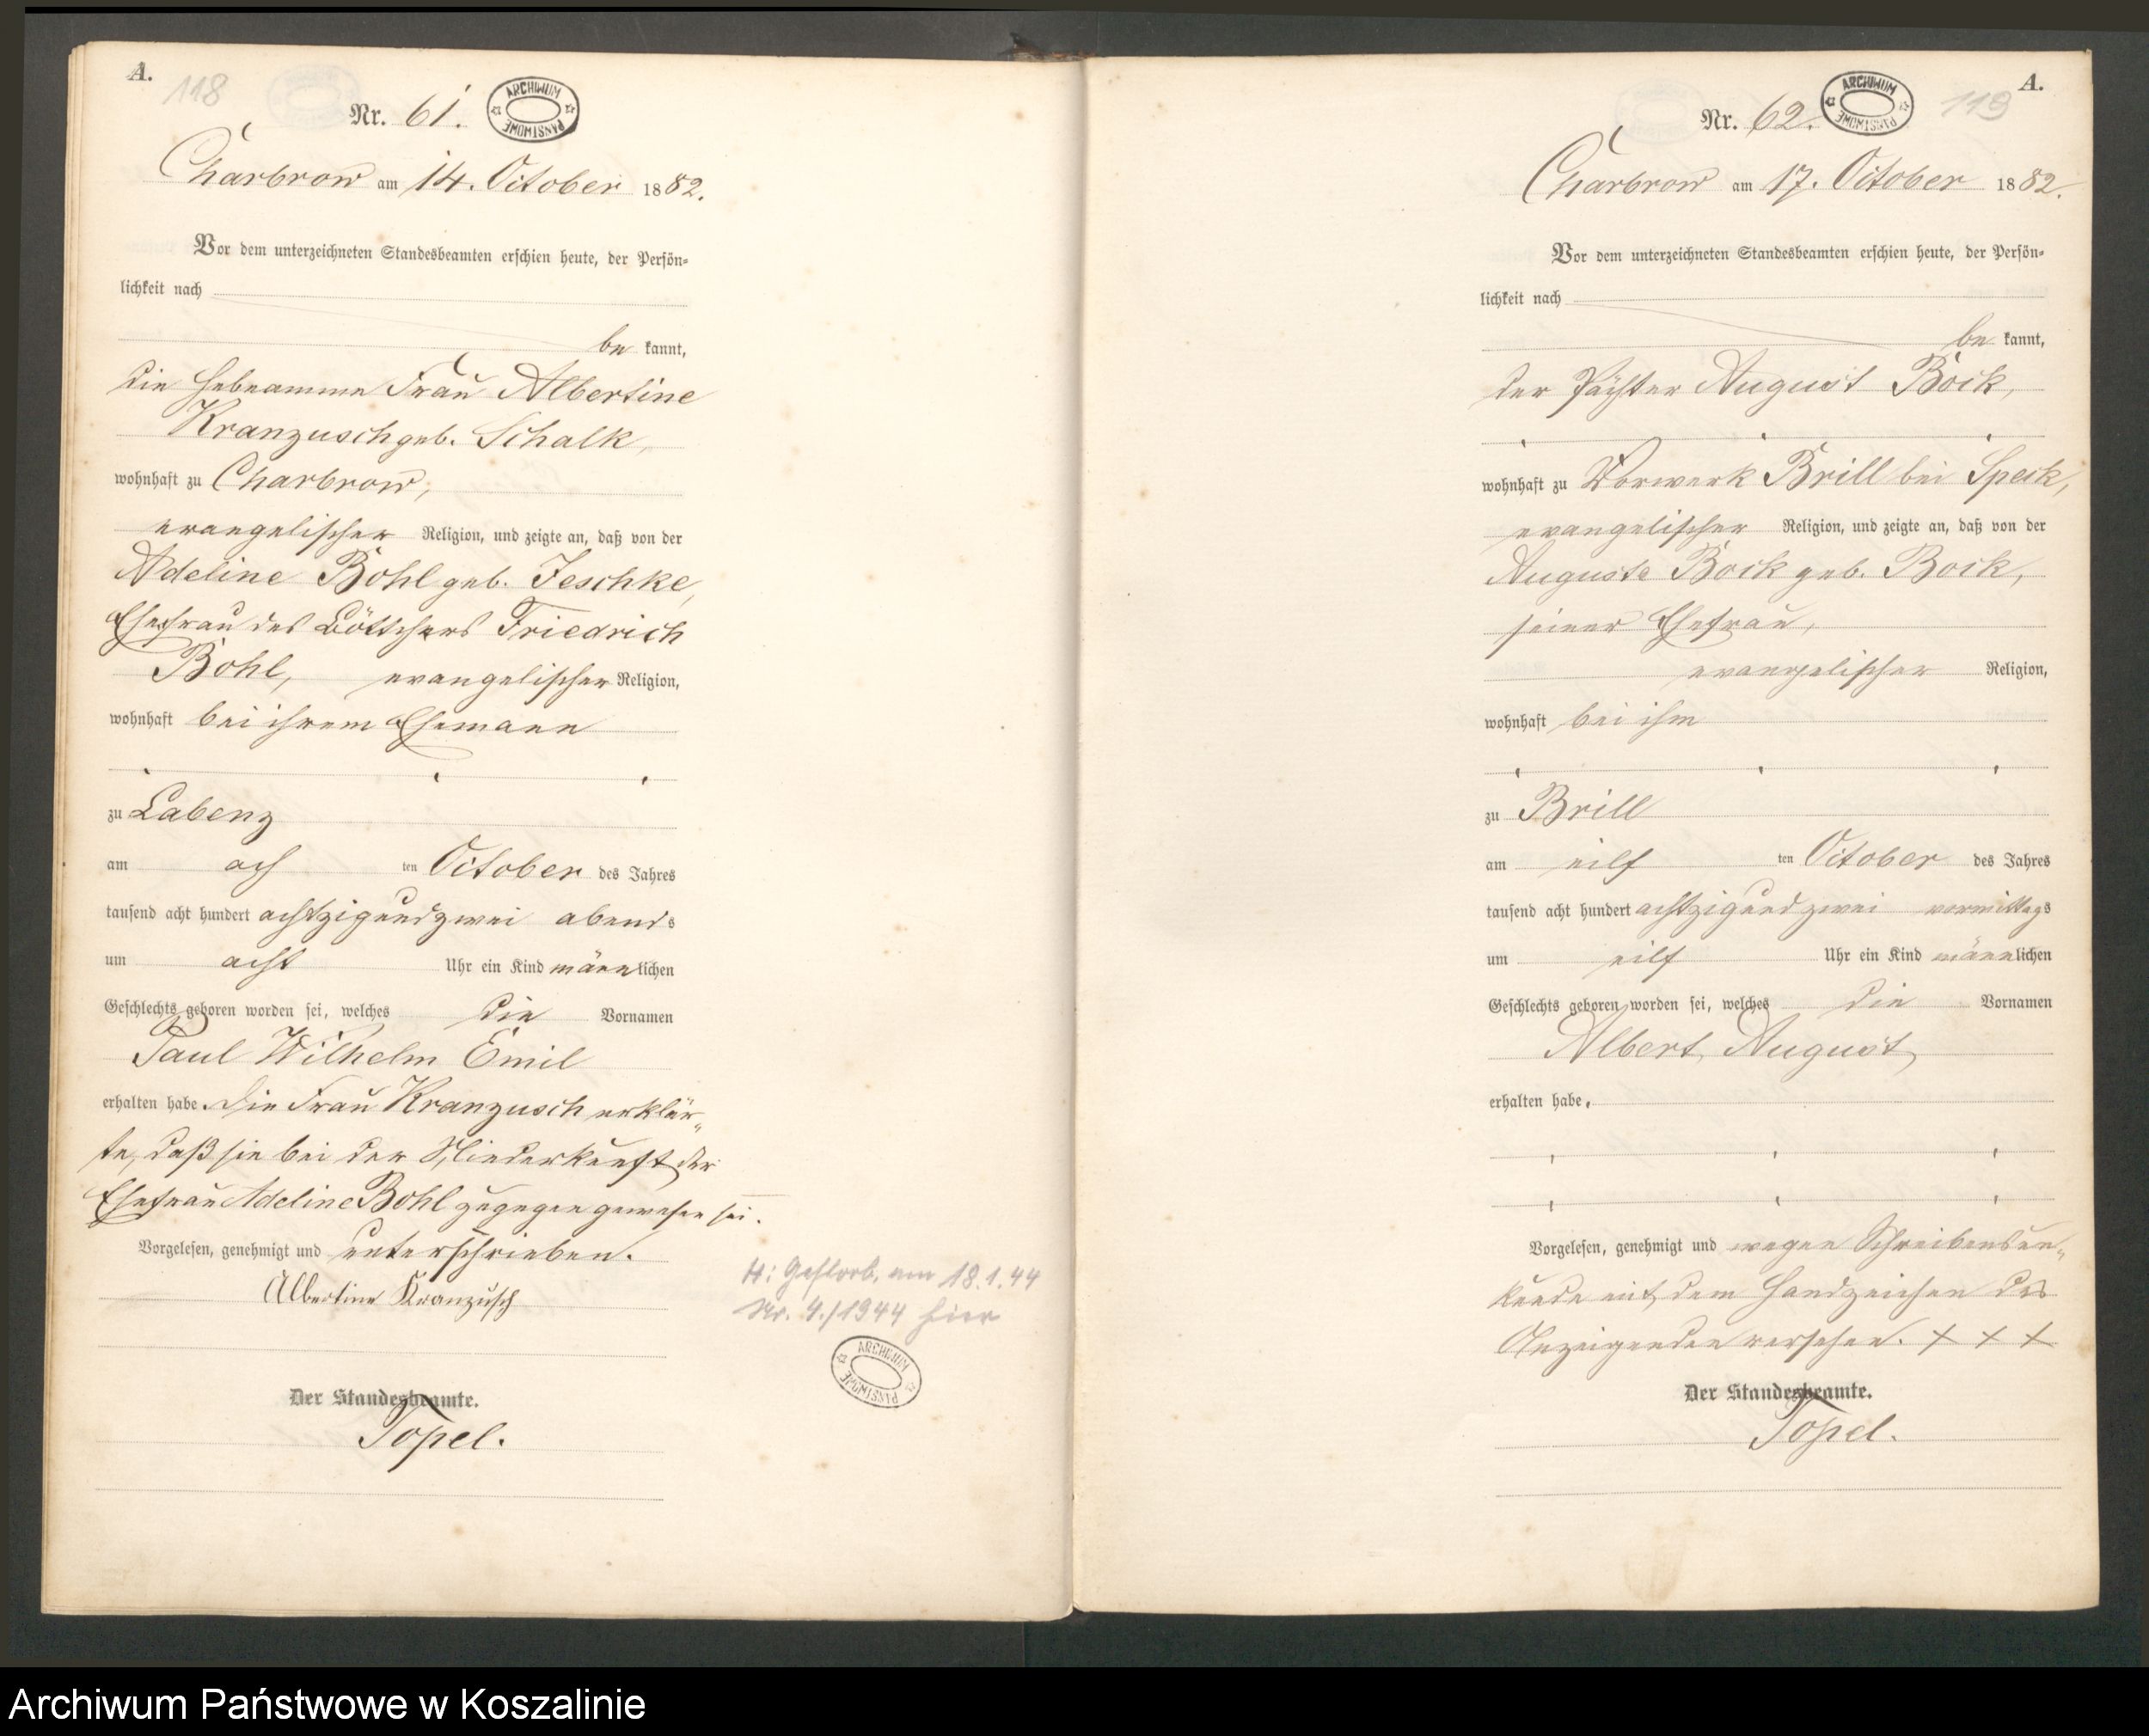 A.
118
Nr. 61.
ARCHIWUM PAŃSTWOWE
Charbrow am 14. October 1882.
Vor dem unterzeichneten Standesbeamten erschien heute, der Persön=
lichkeit nach
be kannt,
die Hebeamme Frau Albertine
Kranzusch geb. Schalk,
wohnhaft zu Charbrow,
evangelischer Religion, und zeigte an, daß von der
Adeline Bohl geb. Jeschke,
Ehefrau des Böttchers Friedrich
Bohl, evangelischer Religion,
wohnhaft bei ihrem Ehemann
zu Labenz
am ach ten October des Jahres
tausend acht hundert achtzigundzwei abends
um acht Uhr ein Kind männlichen
Geschlechts geboren worden sei, welches die Vornamen
Paul Wilhelm Emil
erhalten habe. Die Frau Kranzusch erklär„
te, daß sie bei der Niederkunft der
Ehefrau Adeline Bohl zugegen gewesen sei.
Vorgelesen, genehmigt und unterschrieben.
Albertine Kranzusch
Der Standesbeamte.
Topel.
H: Gestorb. am 18.1.44
Nr. 4./1944 hier
ARCHIWUM PAŃSTWOWE
A.
119
Nr. 62.
ARCHIWUM PAŃSTWOWE
Charbrow am 17. October 1882.
Vor dem unterzeichneten Standesbeamten erschien heute, der Persön=
lichkeit nach
be kannt,
der Pächter August Bock,
wohnhaft zu Vorwerk Brill bei Speck,
evangelischer Religion, und zeigte an, daß von der
Auguste Bock geb. Bock,
seiner Ehefrau,
evangelischer Religion,
wohnhaft bei ihm
zu Brill
am eilf ten October des Jahres
tausend acht hundert achtzigundzwei vormittags
um eilf Uhr ein Kind männlichen
Geschlechts geboren worden sei, welches die Vornamen
Albert August
erhalten habe.
Vorgelesen, genehmigt und wegen Schreibensun„
kunde mit dem Handzeichen des
Anzeigenden versehen. + + +
Der Standesbeamte.
Topel.
Archiwum Państwowe w Koszalinie